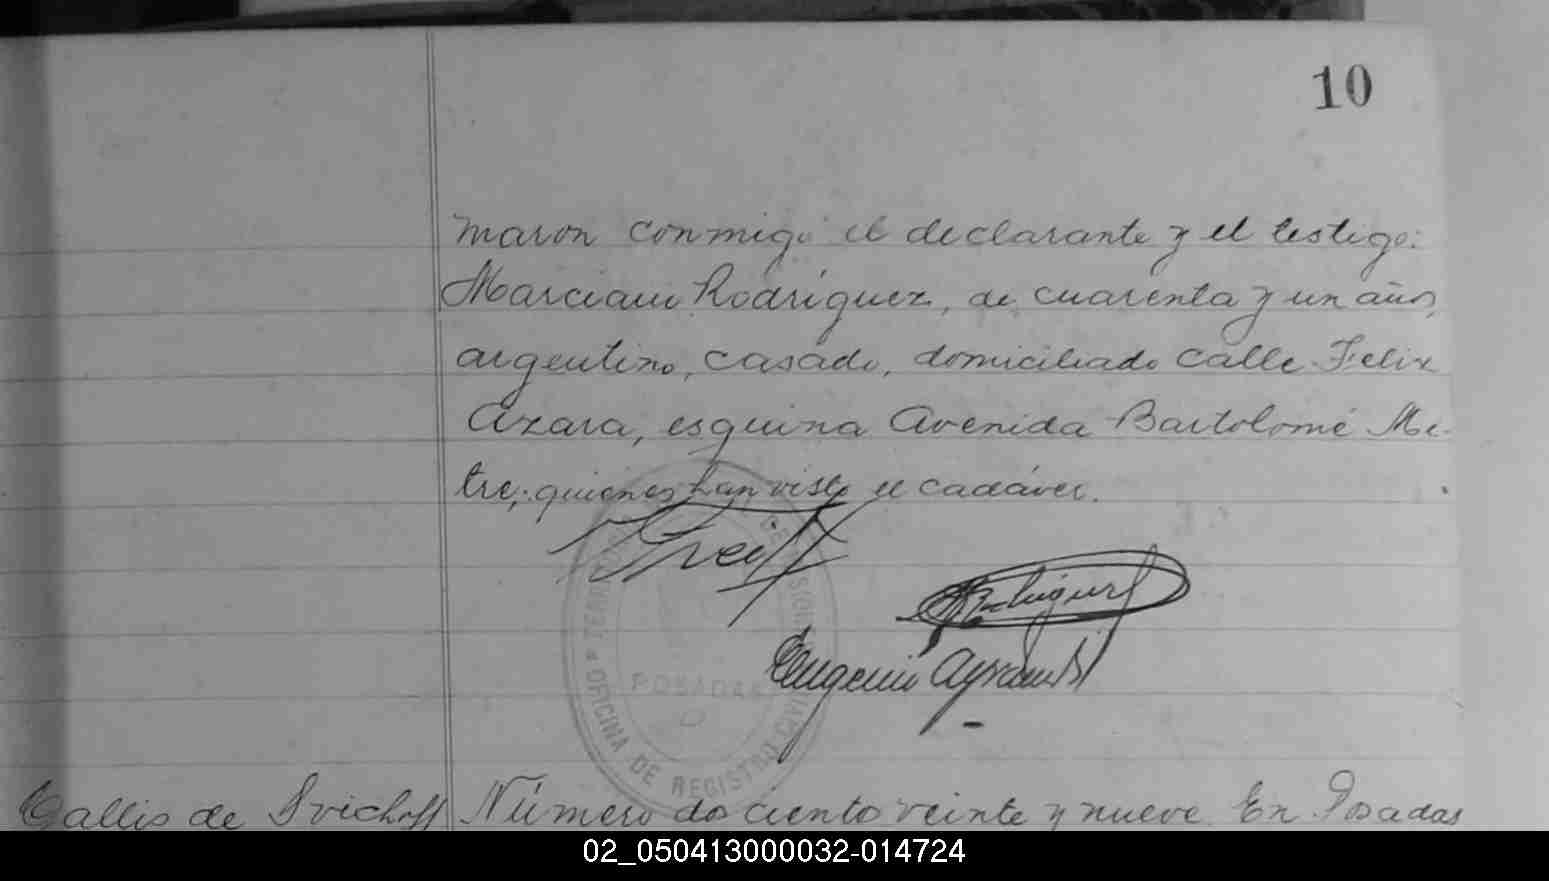 10
maron conmigo el declarante y el testigo:
Marciano Rodríguez, de cuarenta y un años,
argentino, casado, domiciliado calle Felix
Azara, esquina Avenida Bartolomé Mi-
tre; quienes han visto el cadáver.
Rodriguez
Eugenio
TERRITO
SIONES
POSADAS
OFICINA DE REGISTRO CIVIL
Callis de Número doscientos veinte y nueve. En Posadas
02_050413000032-014724